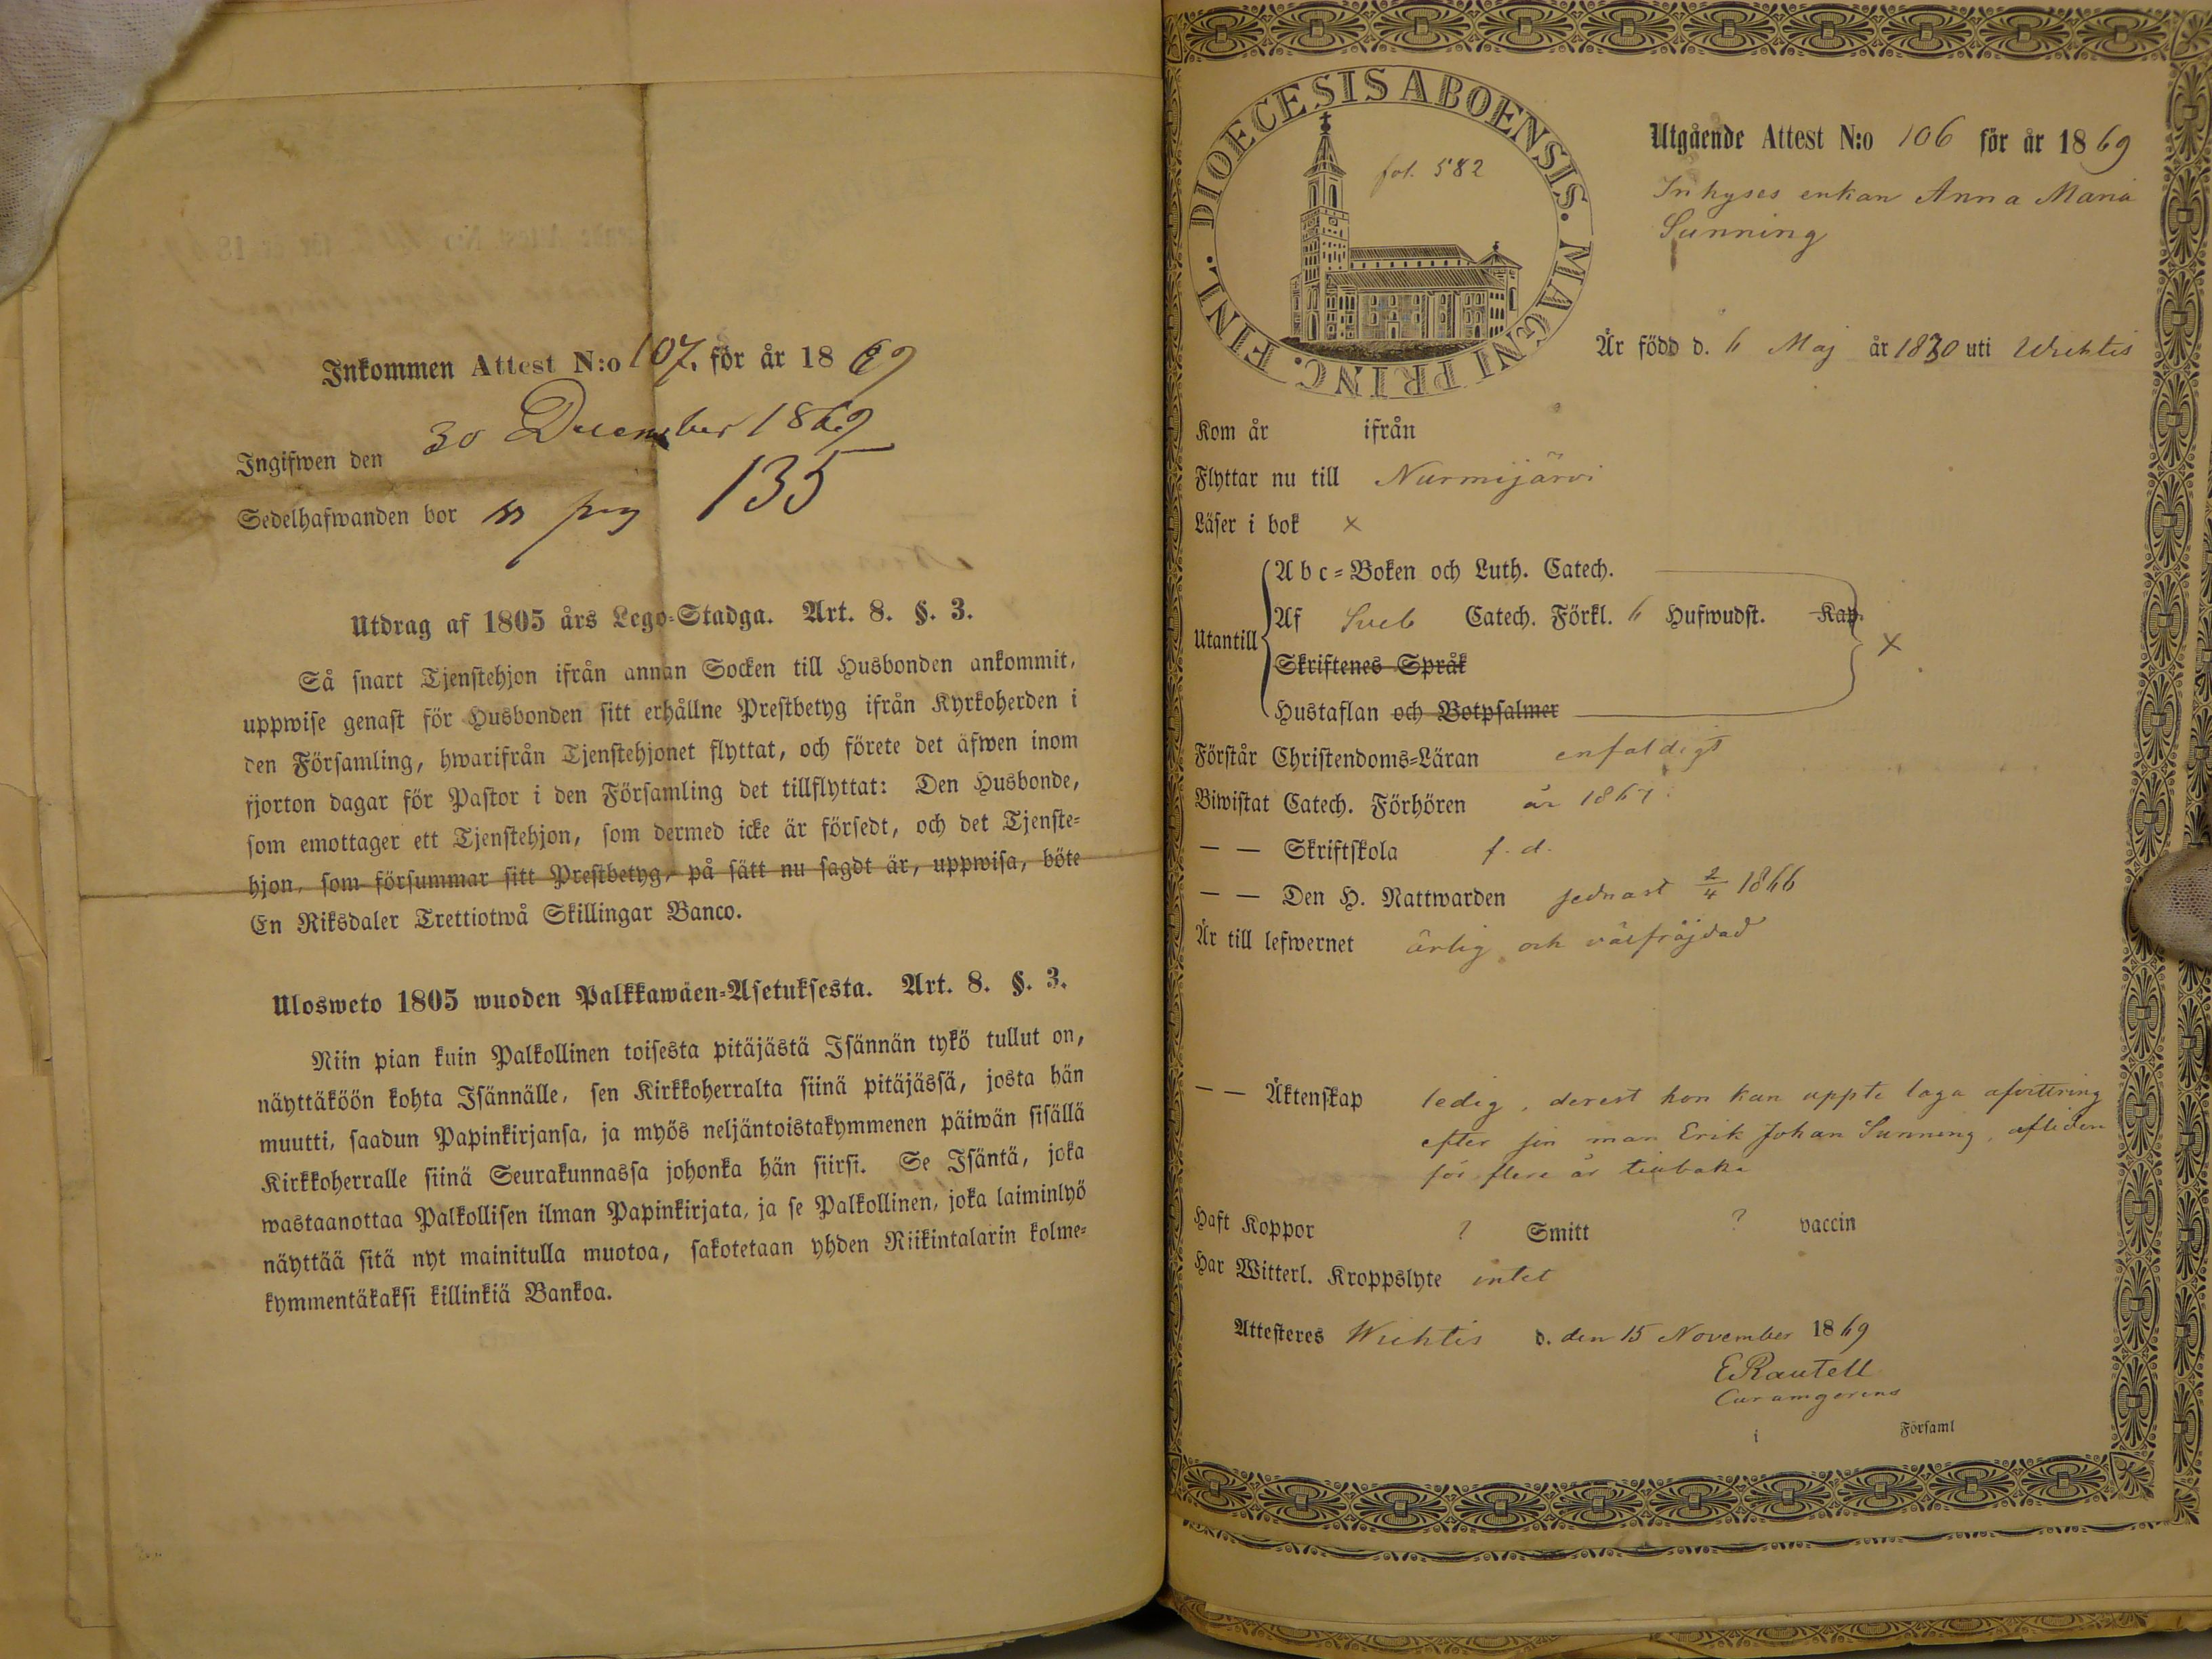 Inkommen Attest N:o 107. för år 1869
Ingifwen den 30 December 1869
Sedelhafwanden bor pag 135
Utdrag af 1805 års Lego-Stadga. Art. 8. §. 3.
Så snart Tjenstehjon ifrån annan Socken till Husbonden ankommit,
uppwise genast för Husbonden sitt erhållne Prestbetyg ifrån Kyrkoherden i
den Församling, hwarifrån Tjenstehjonet flyttat, och förete det äfwen inom
fjorton dagar för Pastor i den Församling det tillflyttat: Den Husbonde,
som emottager ett Tjenstehjon, som dermed icke är försedt, och det Tjenste-
hjon, som försummar sitt Prestbetyg, på sätt nu sagdt är, uppwisa, böte
En Riksdaler Trettiotwå Skillingar Banco.
Ulosweto 1805 wuoden Palkkawäen-Asetuksesta. Art. 8. §. 3.
Niin pian kuin Palkollinen toisesta pitäjästä Isännän tykö tullut on,
näyttäköön kohta Isännälle, sen Kirkkoherralta siinä pitäjässä, josta hän
muutti, saadun Papinkirjansa, ja myös neljäntoistakymmenen päiwän sisällä
Kirkkoherralle siinä Seurakunnassa johonka hän siirsi. Se Isäntä, joka
wastaanottaa Palkollisen ilman Papinkirjata, ja se Palkollinen, joka laiminlyö
näyttää sitä nyt mainitulla muotoa, sakotetaan yhden Riikintalarin kolme-
kymmentäkaksi killinkiä Bankoa.
DIOECESIS ABOENSIS. MAGNI PRINC. FINL.
fol. 582
Utgående Attest N:o 106 för år 1869
Inhyses enkan Anna Maria
Sunning
Är född d. 6 Maj år 1830 uti Wichtis
Kom år ifrån
Flyttar nu till Nurmijärvi
Läser i bok ×
Utantill
Abc-Boken och Luth. Catech.
Af Sveb Catech. Förkl. 6 Hufwudst. Kap. ×
Skriftenes Språk
Hustaflan och Botpsalmer
Förstår Christendoms-Läran enfaldigt
Biwistat Catech. Förhören år 1867
— — Skriftskola f. d.
— — Den H. Nattwarden sednast 2/4 1866
Är till lefwernet ärlig och välfräjdad
— — Äktenskap ledig, derest hon kan uppte laga afvittring
efter sin man Erik Johan Sunning, afliden
för flere år tillbaka
Haft Koppor ? Smitt ? vaccin
Har Witterl. Kroppslyte intet
Attesteres Wichtis d. den 15 November 1869
E Rautell
Curamgerens
i Församl